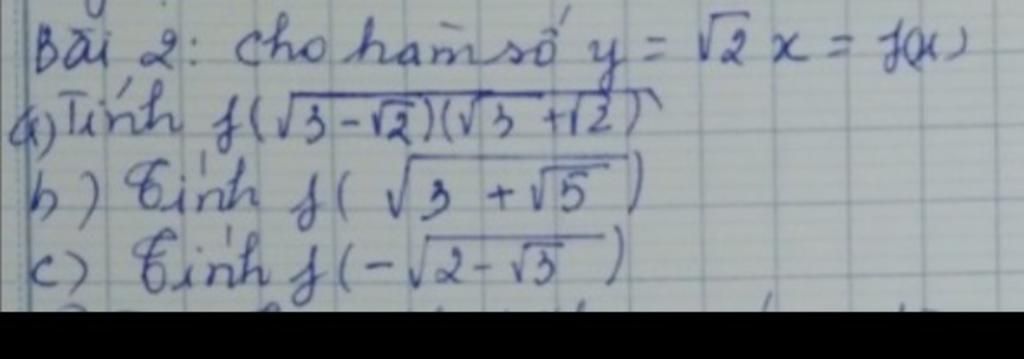 Bài 2: Cho hàm số y = √2 x = f(x)
a) Tính f(√3-√2)(√3+√2)
b) Tính f(√(3+√5))
c) Tính f(-√(2-√3))